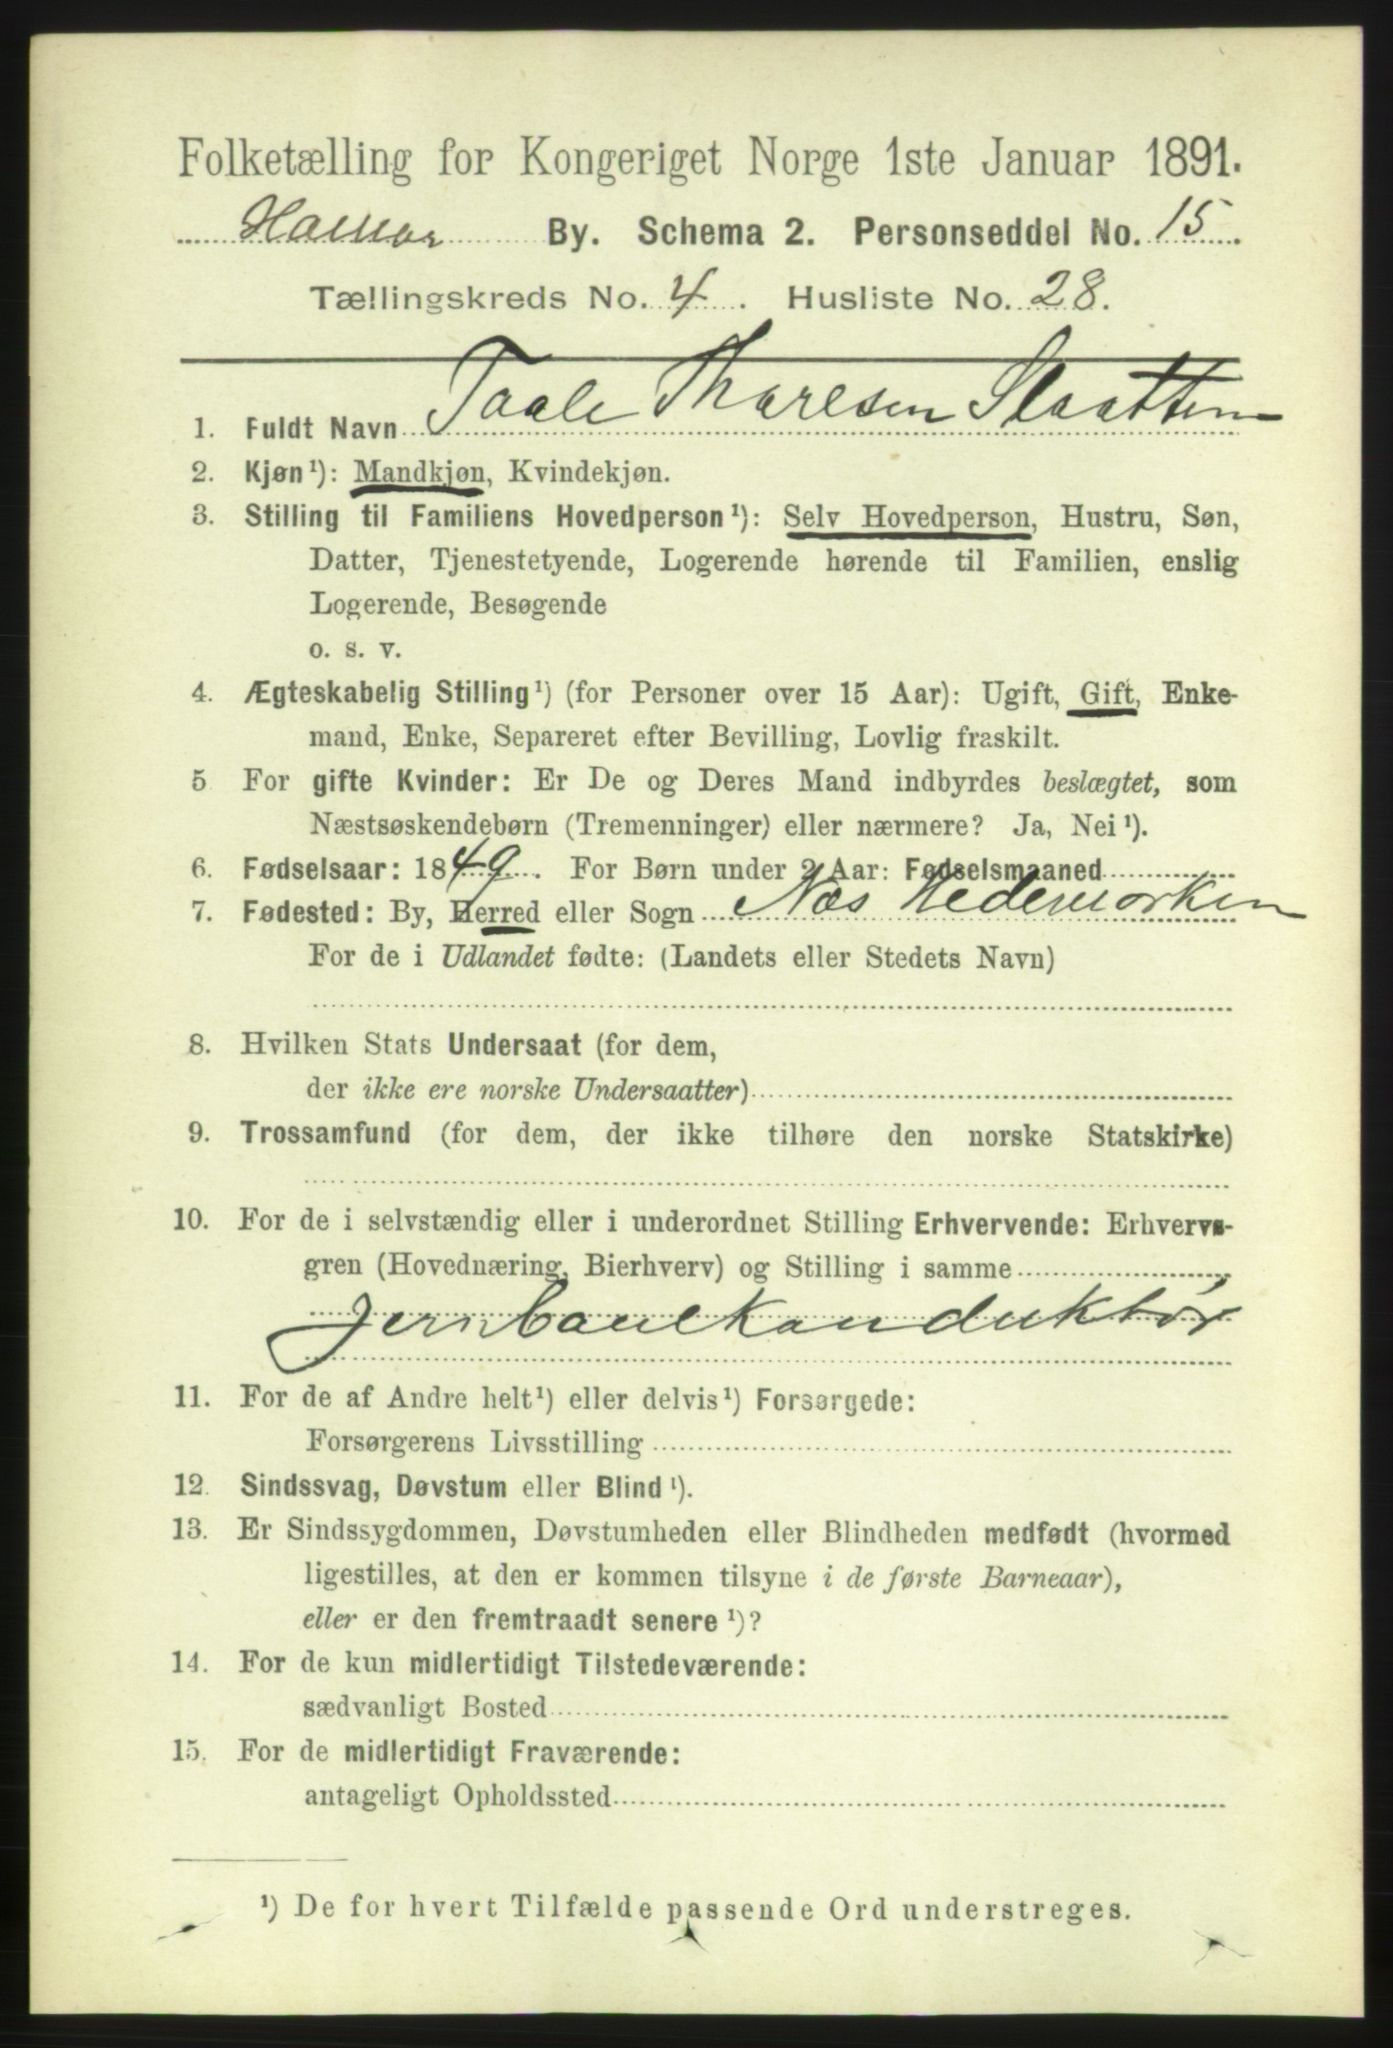 Folketælling for Kongeriget Norge 1ste Januar 1891.
Hamar By. Schema 2. Personseddel No. 15.
Tællingskreds No. 4. Husliste No. 28.
1. Fuldt Navn Taale Tharesen Slaatten
2. Kjøn¹): Mandkjøn, Kvindekjøn.
3. Stilling til Familiens Hovedperson¹): Selv Hovedperson, Hustru, Søn,
Datter, Tjenestetyende, Logerende hørende til Familien, enslig
Logerende, Besøgende
o. s. v.
4. Ægteskabelig Stilling¹) (for Personer over 15 Aar): Ugift, Gift, Enke-
mand, Enke, Separeret efter Bevilling, Lovlig fraskilt.
5 For gifte Kvinder: Er De og Deres Mand indbyrdes beslægtet, som
Næstsøskendebørn (Tremenninger) eller nærmere? Ja, Nei¹).
6. Fødselsaar: 1849. For Børn under 2 Aar: Fødselsmaaned
7. Fødested: By, Herred eller Sogn Næs Hedemarken
For de i Udlandet fødte: (Landets eller Stedets Navn)
8. Hvilken Stats Undersaat (for dem,
der ikke ere norske Undersaatter)
9. Trossamfund (for dem, der ikke tilhøre den norske Statskirke)
10. For de i selvstændig eller i underordnet Stilling Erhvervende: Erhvervs-
gren (Hovednæring, Bierhverv) og Stilling i samme
Jernbanekonduktør
11. For de af Andre helt¹) eller delvis¹) Forsørgede:
Forsørgerens Livsstilling
12. Sindssvag, Døvstum eller Blind¹).
13. Er Sindssygdommen, Døvstumheden eller Blindheden medfødt (hvormed
ligestilles, at den er kommen tilsyne i de første Barneaar),
eller er den fremtraadt senere¹)?
14. For de kun midlertidigt Tilstedeværende:
sædvanligt Bosted
15. For de midlertidigt Fraværende:
antageligt Opholdssted
¹) De for hvert Tilfælde passende Ord understreges.